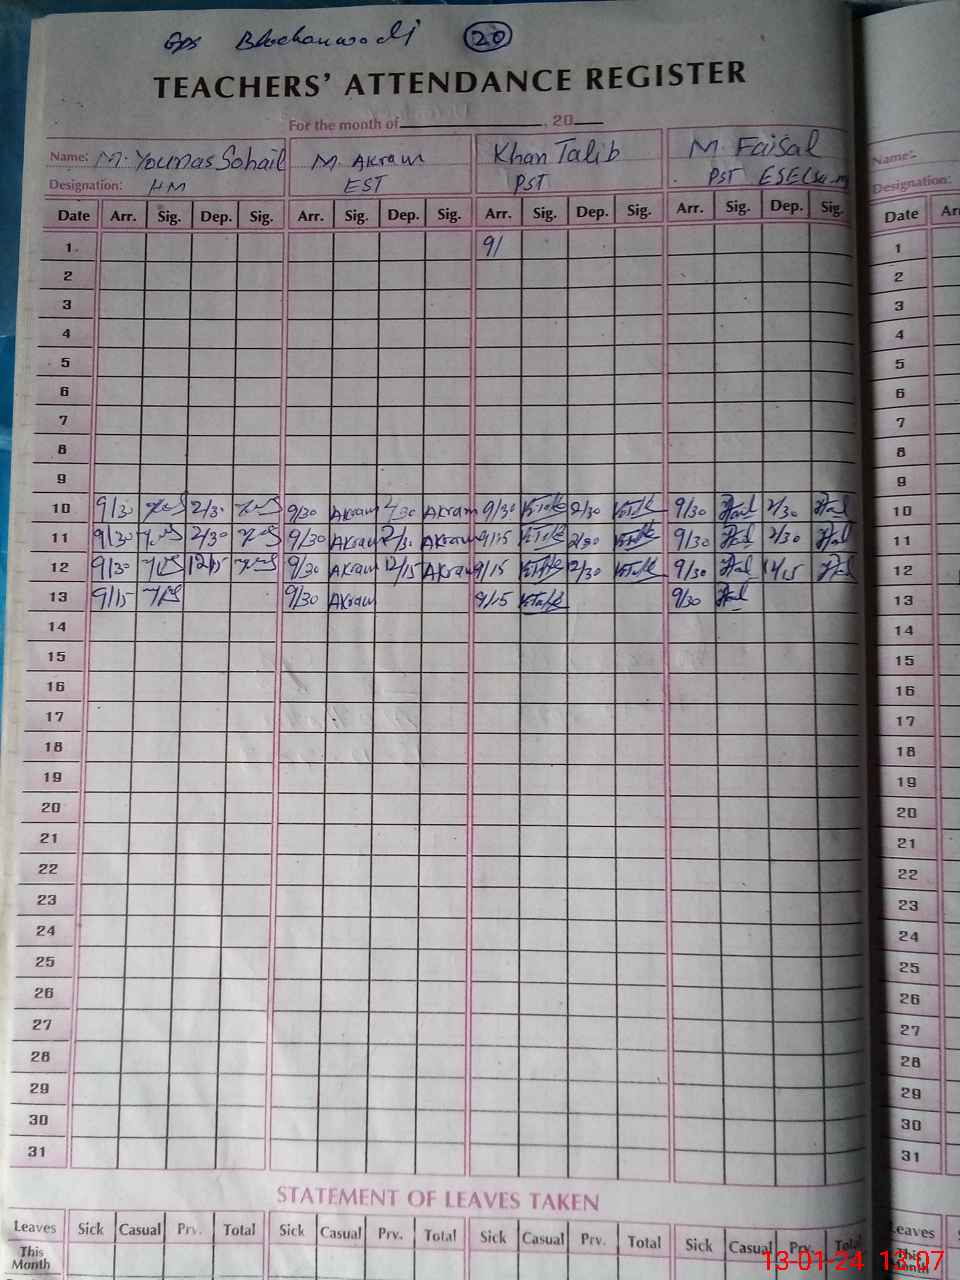 GPS 20
TEACHERS' ATTENDANCE REGISTER
For the month of , 20
Name: M. Younas Sohail M. Akram Khan Talib M. Faisal Name:
Designation: HM EST PST PST ESE Designation:
Date Arr. Sig. Dep. Sig. Arr. Sig. Dep. Sig. Arr. Sig. Dep. Sig. Arr. Sig. Dep. Sig. Date Arr
1. 9/ 1
2 2
3 3
4 4
5 5
6 6
7 7
8 8
9 9
10 9/30 2/30 9/30 Akram Akram 9/30 2/30 9/30 2/30 10
11 9/30 2/30 9/30 Akram 2/30 Akram 9/15 2/30 9/30 2/30 11
12 9/30 12/15 9/30 Akram 12/15 Akram 9/15 12/30 9/30 12/15 12
13 9/15 9/30 Akram 9/15 9/30 13
14 14
15 15
16 16
17 17
18 18
19 19
20 20
21 21
22 22
23 23
24 24
25 25
26 26
27 27
28 28
29 29
30 30
31 31
STATEMENT OF LEAVES TAKEN
Leaves Sick Casual Prv. Total Sick Casual Prv. Total Sick Casual Prv. Total Sick Casual Prv. Total Leaves
This Month This Month
13-01-24 13:07